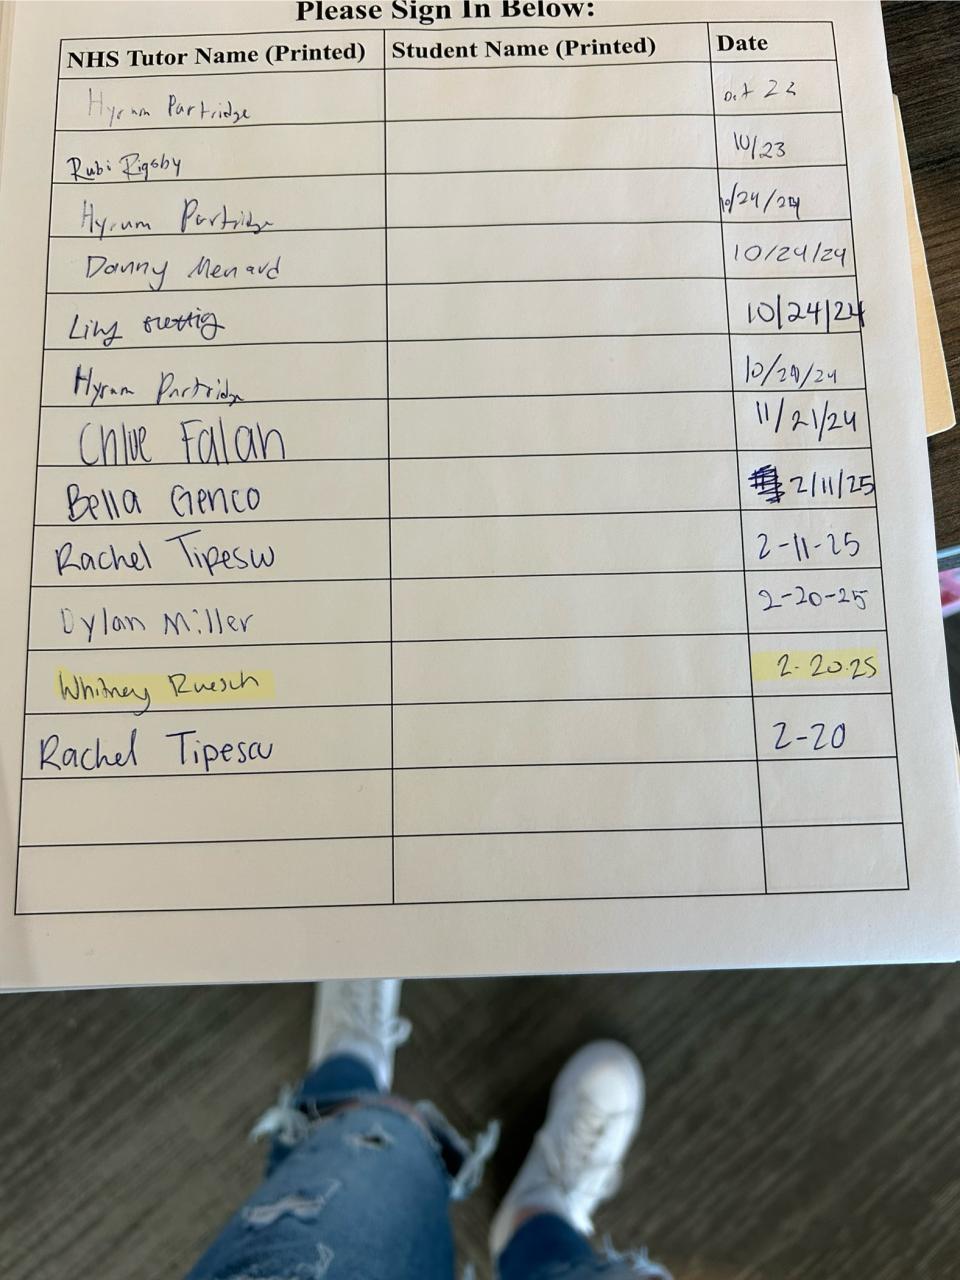 Please Sign In Below:
NHS Tutor Name (Printed) Student Name (Printed) Date
Hyrum Partridge Oct 23
Rubi Rigsby 10/23
Hyrum Partridge 10/24/24
Danny Menard 10/24/24
10/24/24
Hyrum Partridge 10/24/24
Chloe Falan 11/21/24
Bella Genco 2/11/25
Rachel Tipescu 2-11-25
Dylan Miller 2-20-25
Whitney Ruesch 2-20-25
Rachel Tipescu 2-20